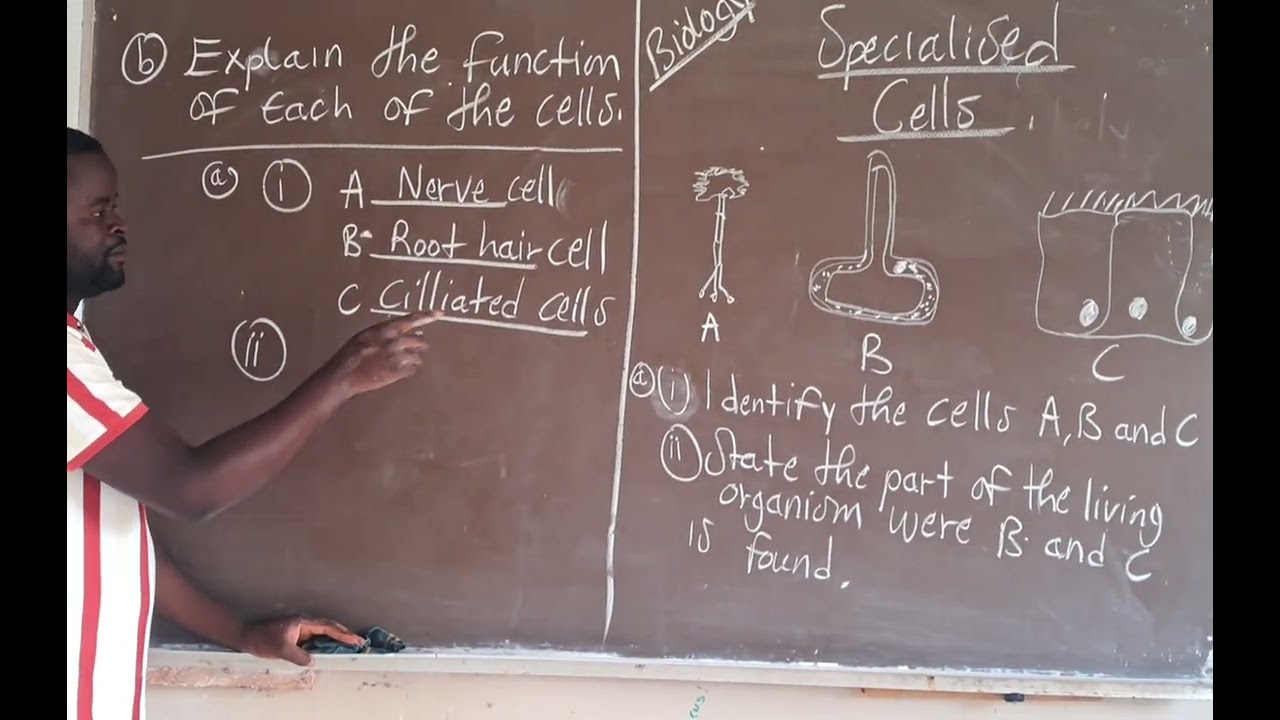 (b) Explain the function
of each of the cells.
(a) (i) A Nerve cell
B- Root hair cell
C Cilliated cells
(ii)
Biology
Specialised
Cells.
A
B
C
(a) (i) Identify the cells A, B and C
(ii) State the part of the living
organism were B and C
is found.